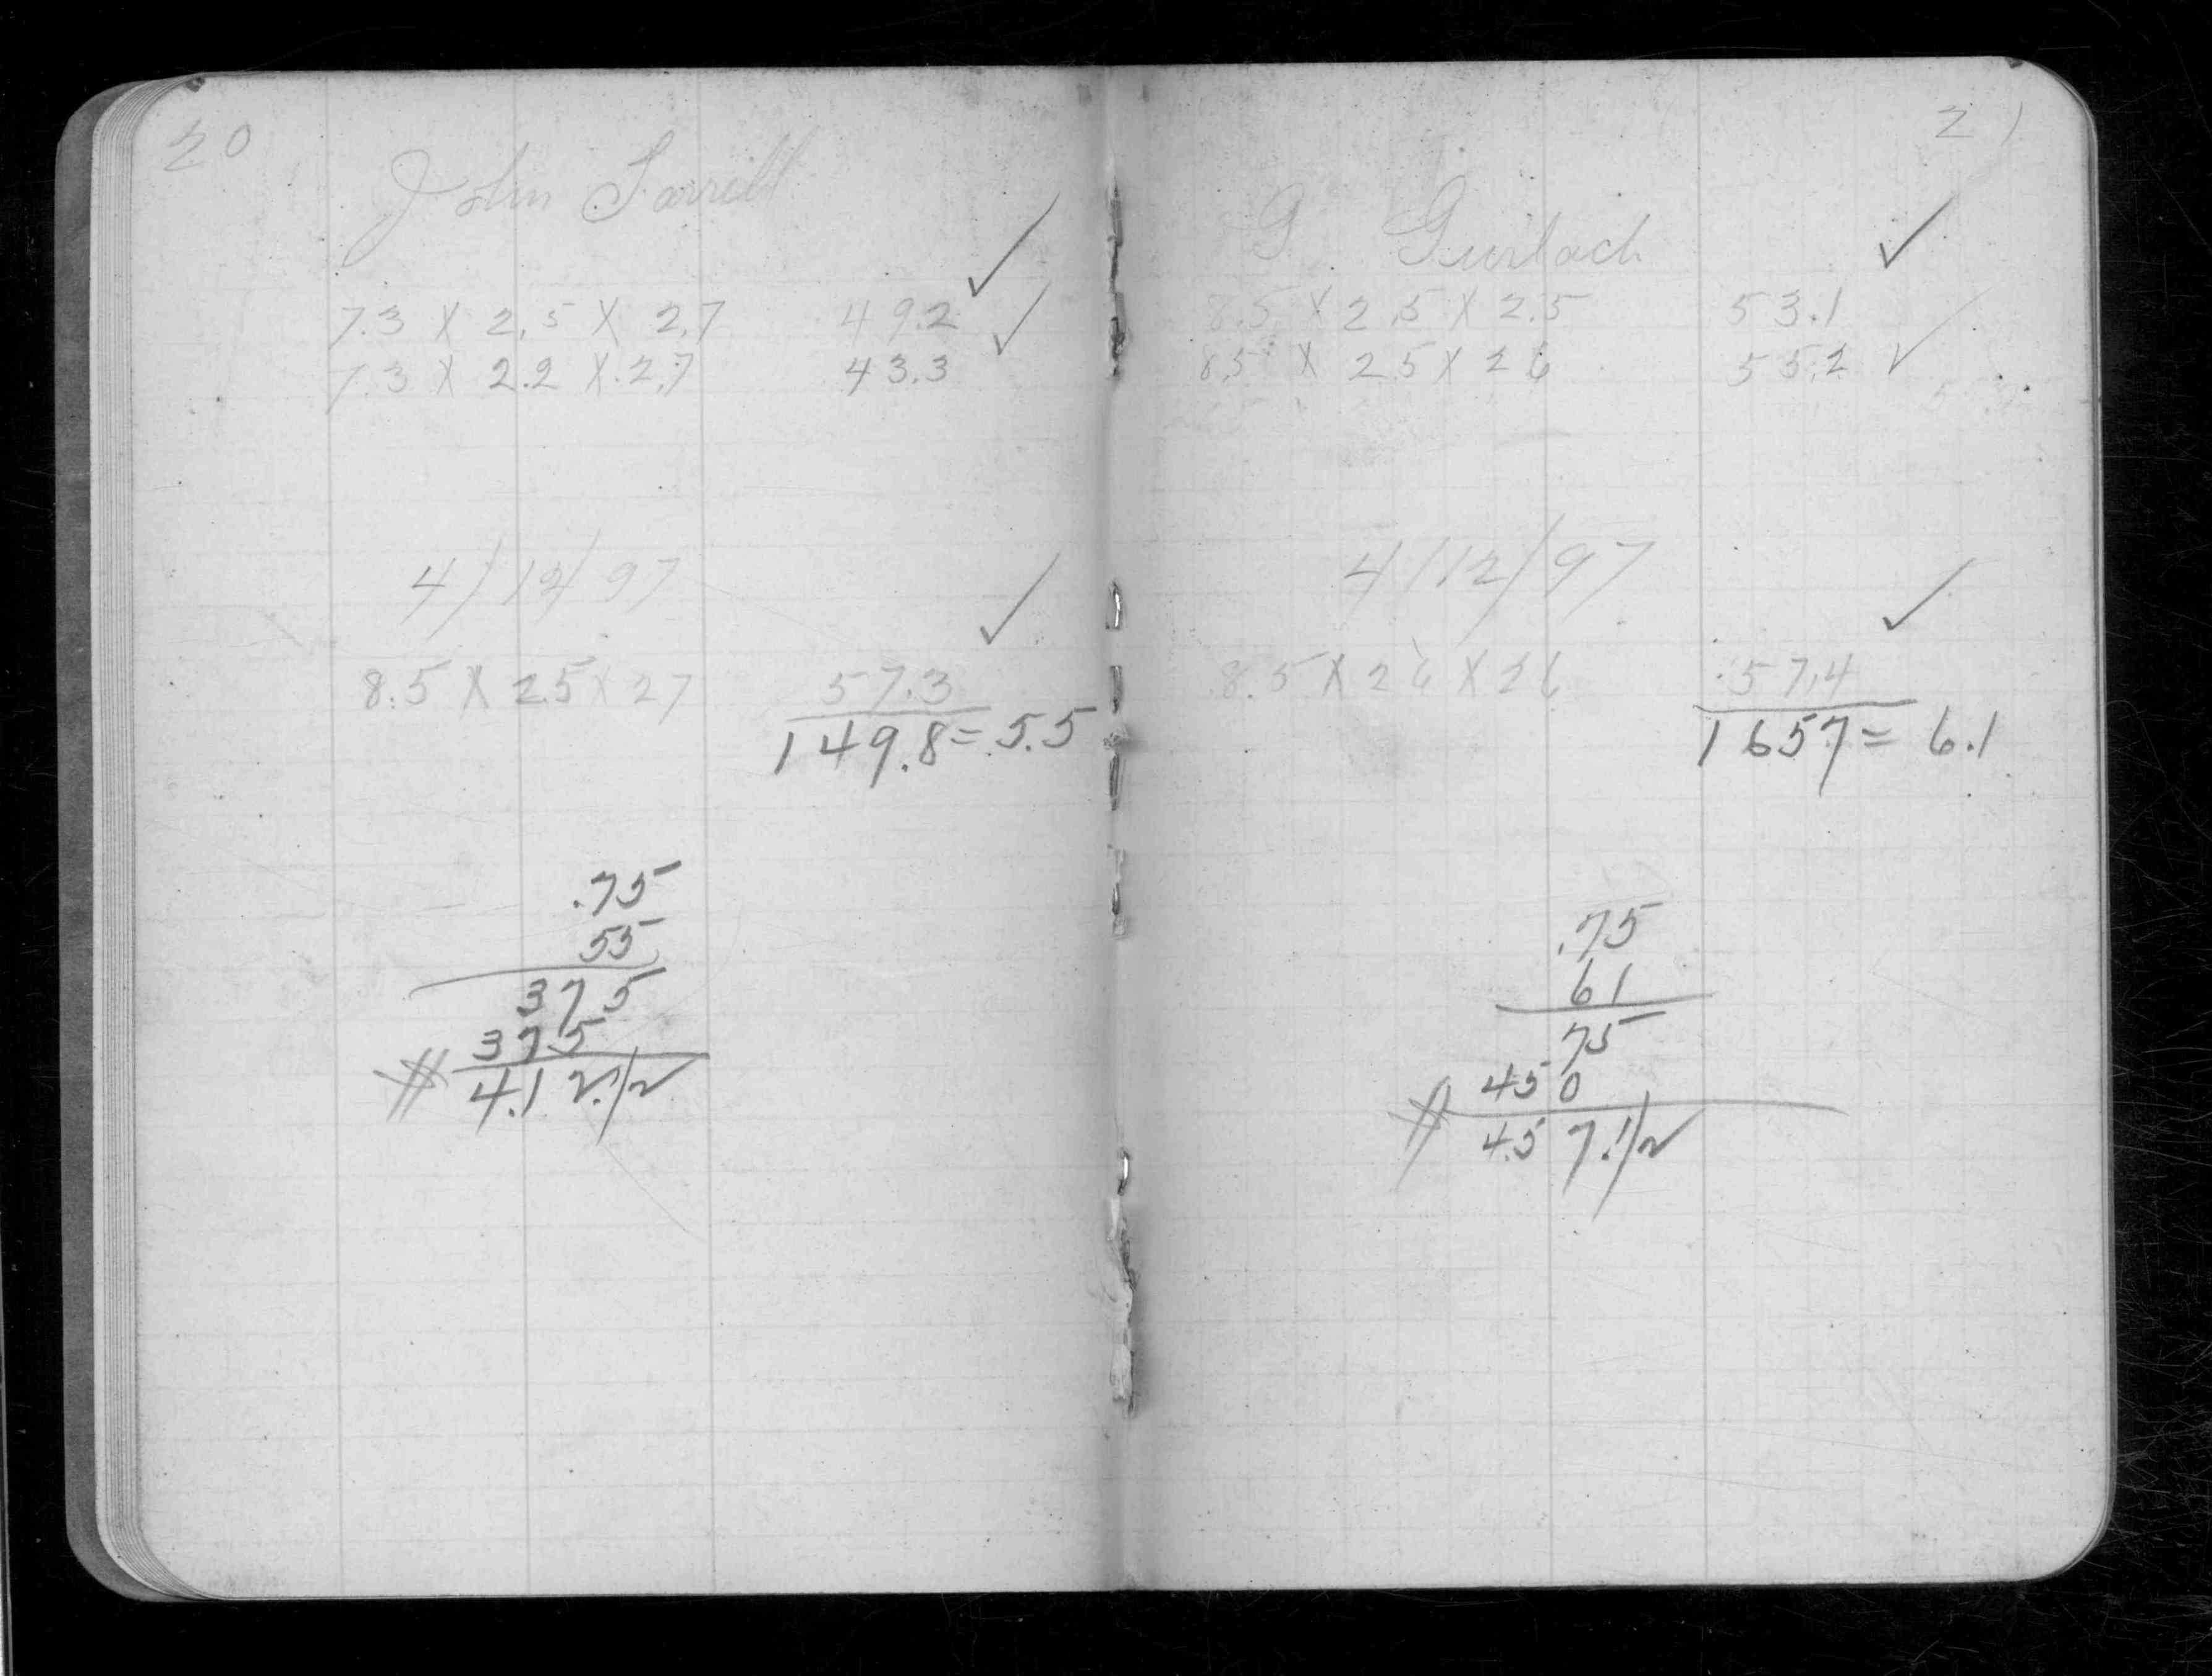 20
John Farrell
✓
7.3 X 2.5 X 2.7 49.2 ✓
7.3 X 2.2 X 2.7 43.3
4/12/97
✓
8.5 X 25 X 27 57.3
149.8 = 5.5
.75
55
375
375
# 4.12 1/2
21
G Gurlach
✓
8.5 X 2.5 X 2.5 53.1
8.5 X 25 X 26 55.2 ✓
4/12/97
✓
8.5 X 26 X 26 57.4
1657 = 6.1
.75
61
75
450
# 4.57 1/2